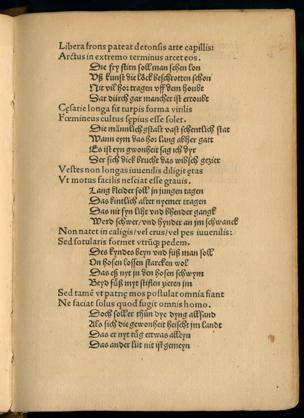 Libera frons pateat detonsis arte capillis:
Arctus in extremo terminus arcet eos.
Die fry stirn soll man sehen lon
Vß kunst die löck beschrotten schon
Nit vil hor tragen vff dem houbt
Gar dürch gar mancher ist erroubt
Cęsarie longa fit turpis forma virilis
Fœmineus cultus sępius esse solet.
Die männlich gstalt vast schentlich stat
Wann eym das hor lang abher gatt
Es ist eyn gwonheit sag ich dyr
Der sich dick brucht das wibsch gezier
Vestes non longas iuuenilis diligit ętas
Vt motus facilis nesciat esse grauis.
Lang kleider soll in jungen tagen
Das kintlich alter nyemer tragen
Das nit syn lüht vnd bhender gangk
Werd schwer/vnd hynder an jm schwanck
Non natet in caligis/vel crus/vel pes iuuenilis:
Sed sotularis formet vtrūq̄ pedem.
Des kyndes beyn vnd füß man soll
On hosen lossen starcken wol
Das eß nyt in den hosen schwym
Beyd füß myt stiflen zieren jm
Sed tamē vt patrię mos postulat omnia fiant
Ne faciat solus quod fugit omnis homo.
Doch soll er thün dye dyng allsand
Als sich die gewonheit heischt jm landt
Das er nyt tüg etwas alleyn
Das ander lüt nit ist gemeyn